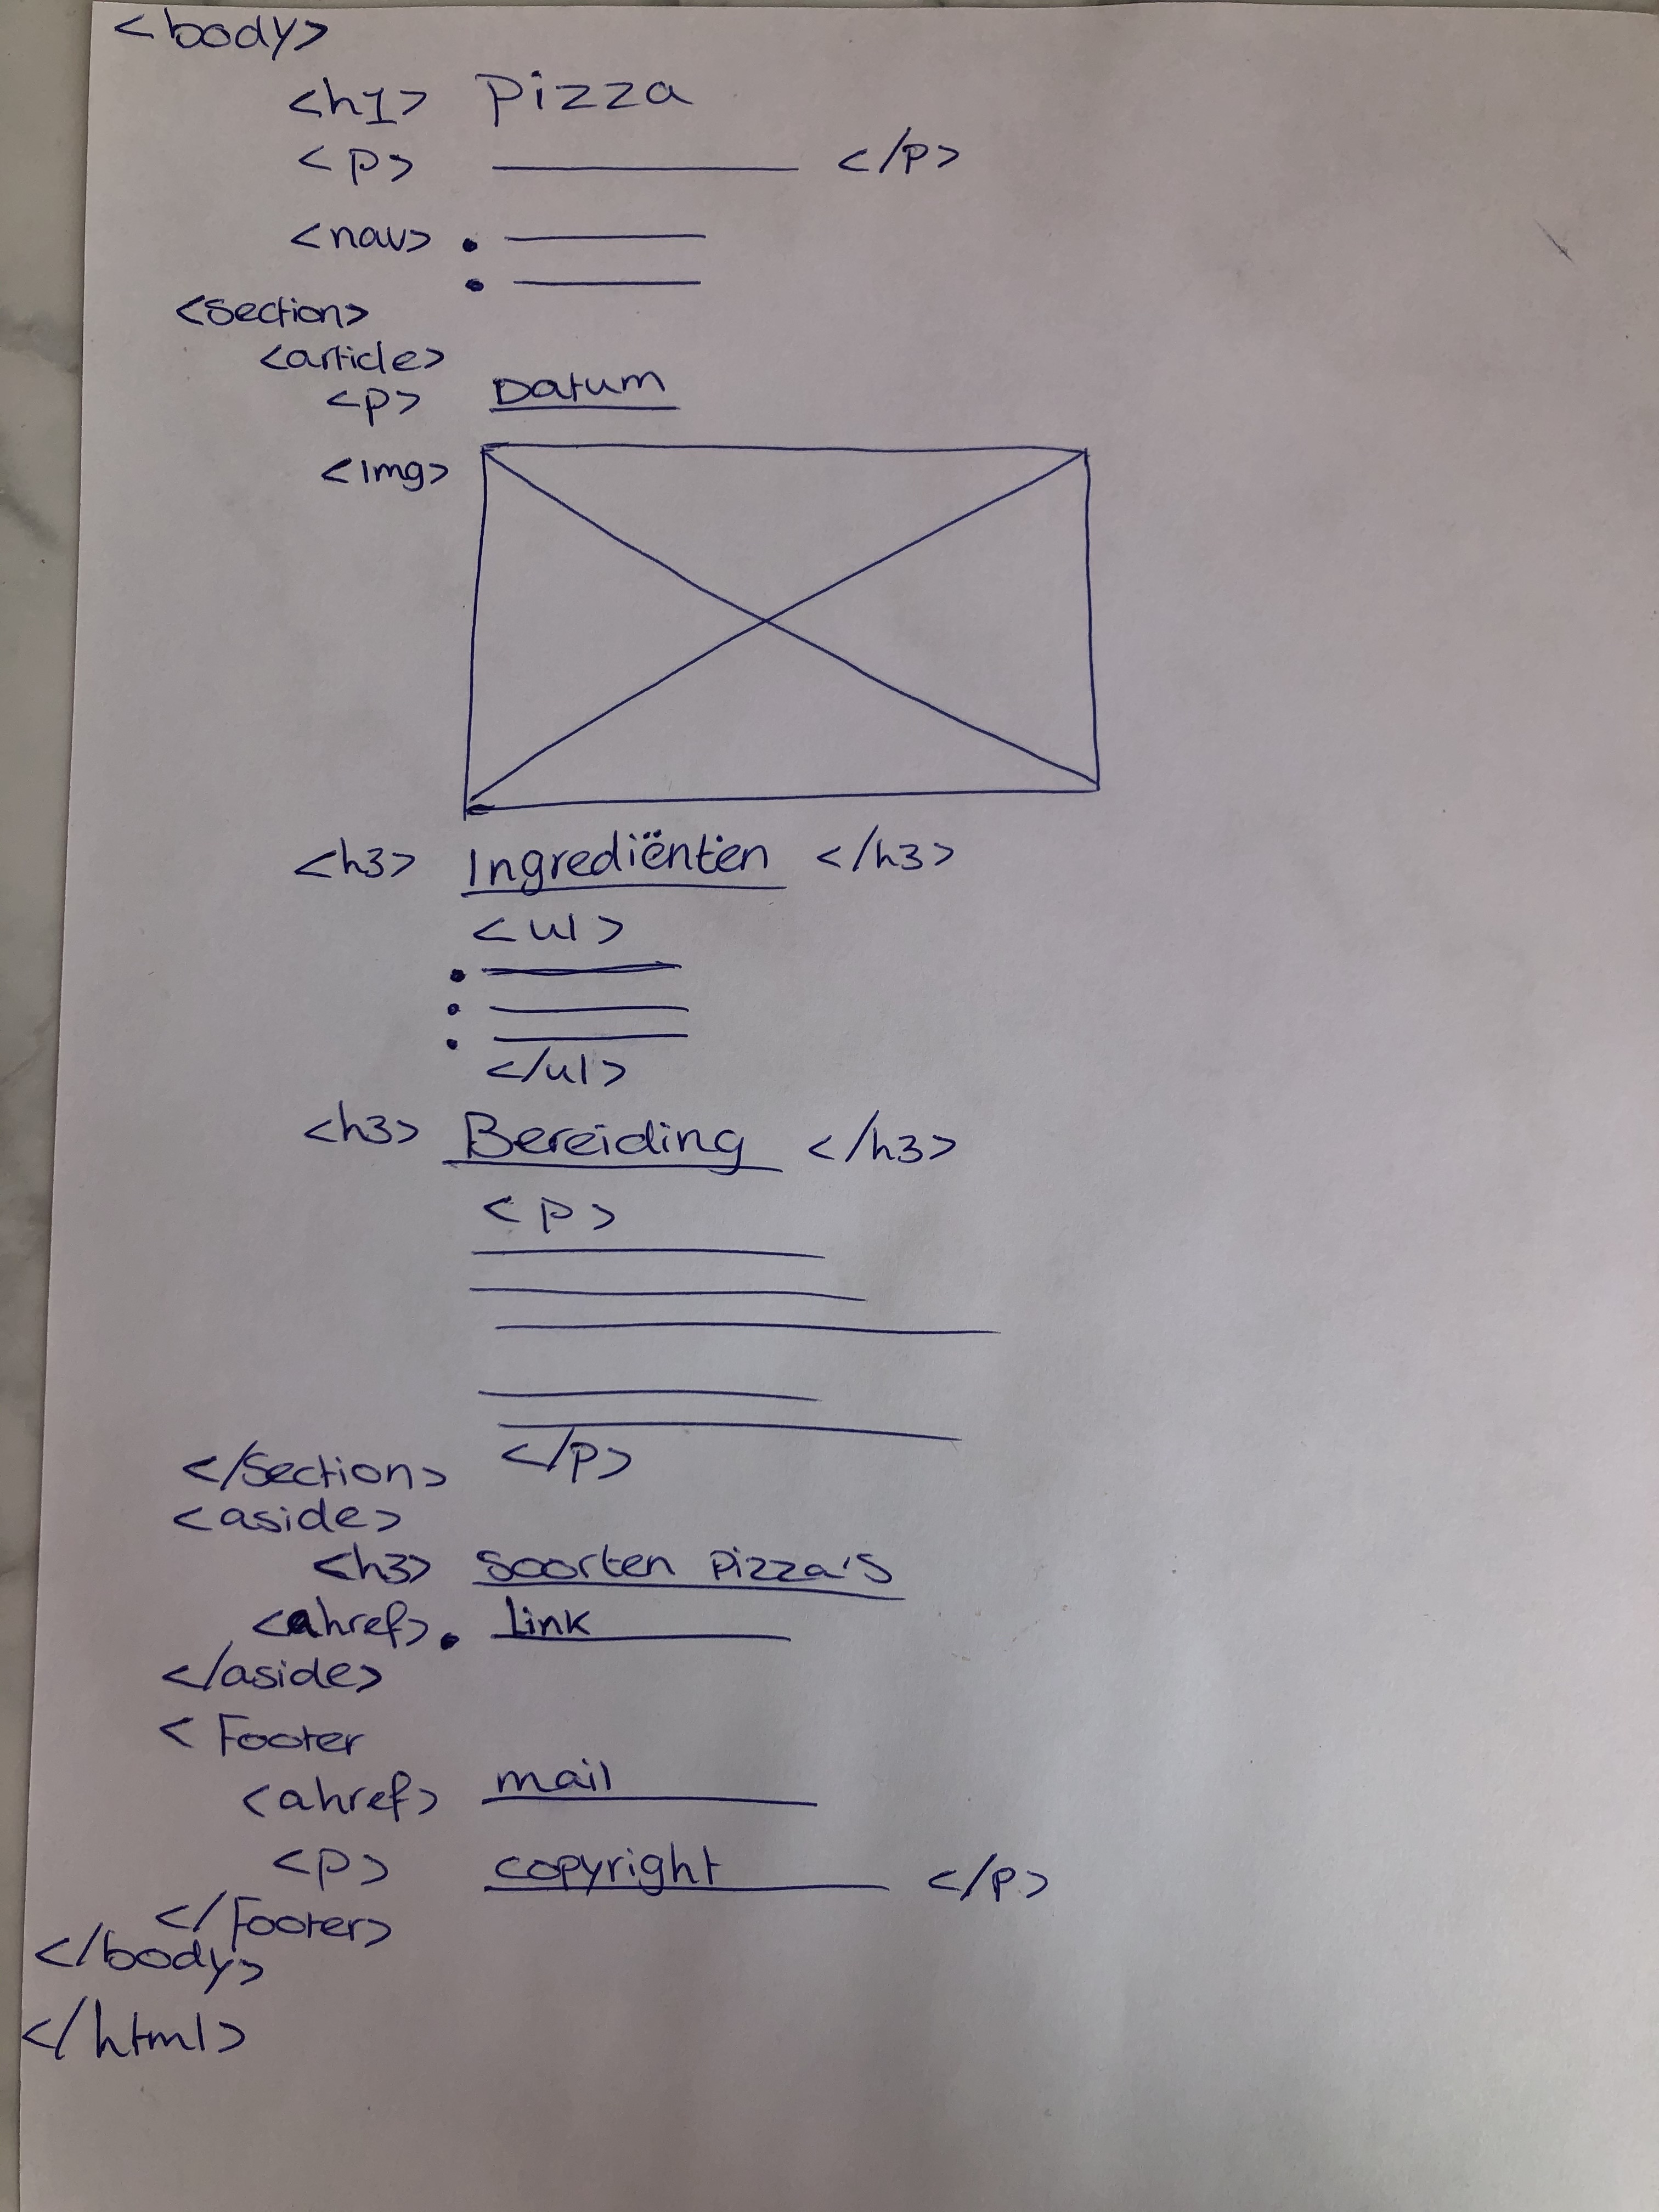 <body>
<h1> Pizza
<p> </p>
<nav>
<section>
<article>
<p> Datum
<img>
<h3> Ingrediënten </h3>
<ul>
</ul>
<h3> Bereiding </h3>
<p>
</p>
</section>
<aside>
<h3> Soorten Pizza's
<ahref> Link
</aside>
< Footer
<ahref> mail
<p> copyright </p>
</Footer>
</body>
</html>